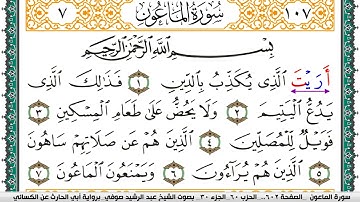 ٧ سُورَةُ المَاعُون ١٠٧
بِسْمِ اللَّهِ الرَّحْمَٰنِ الرَّحِيمِ
أَرَيْتَ الَّذِى يُكَذِّبُ بِالدِّينِ ١ فَذَٰلِكَ الَّذِى
يَدُعُّ الْيَتِيمَ ٢ وَلَا يَحُضُّ عَلَىٰ طَعَامِ الْمِسْكِينِ ٣
فَوَيْلٌ لِّلْمُصَلِّينَ ٤ الَّذِينَ هُمْ عَن صَلَاتِهِمْ سَاهُونَ
٥ الَّذِينَ هُمْ يُرَآءُونَ ٦ وَيَمْنَعُونَ الْمَاعُونَ ٧
سورة الماعون - الصفحة ٦٠٢ - الحزب ٦٠ - الجزء ٣٠ - بصوت الشيخ عبد الرشيد صوفي - برواية أبي الحارث عن الكسائي